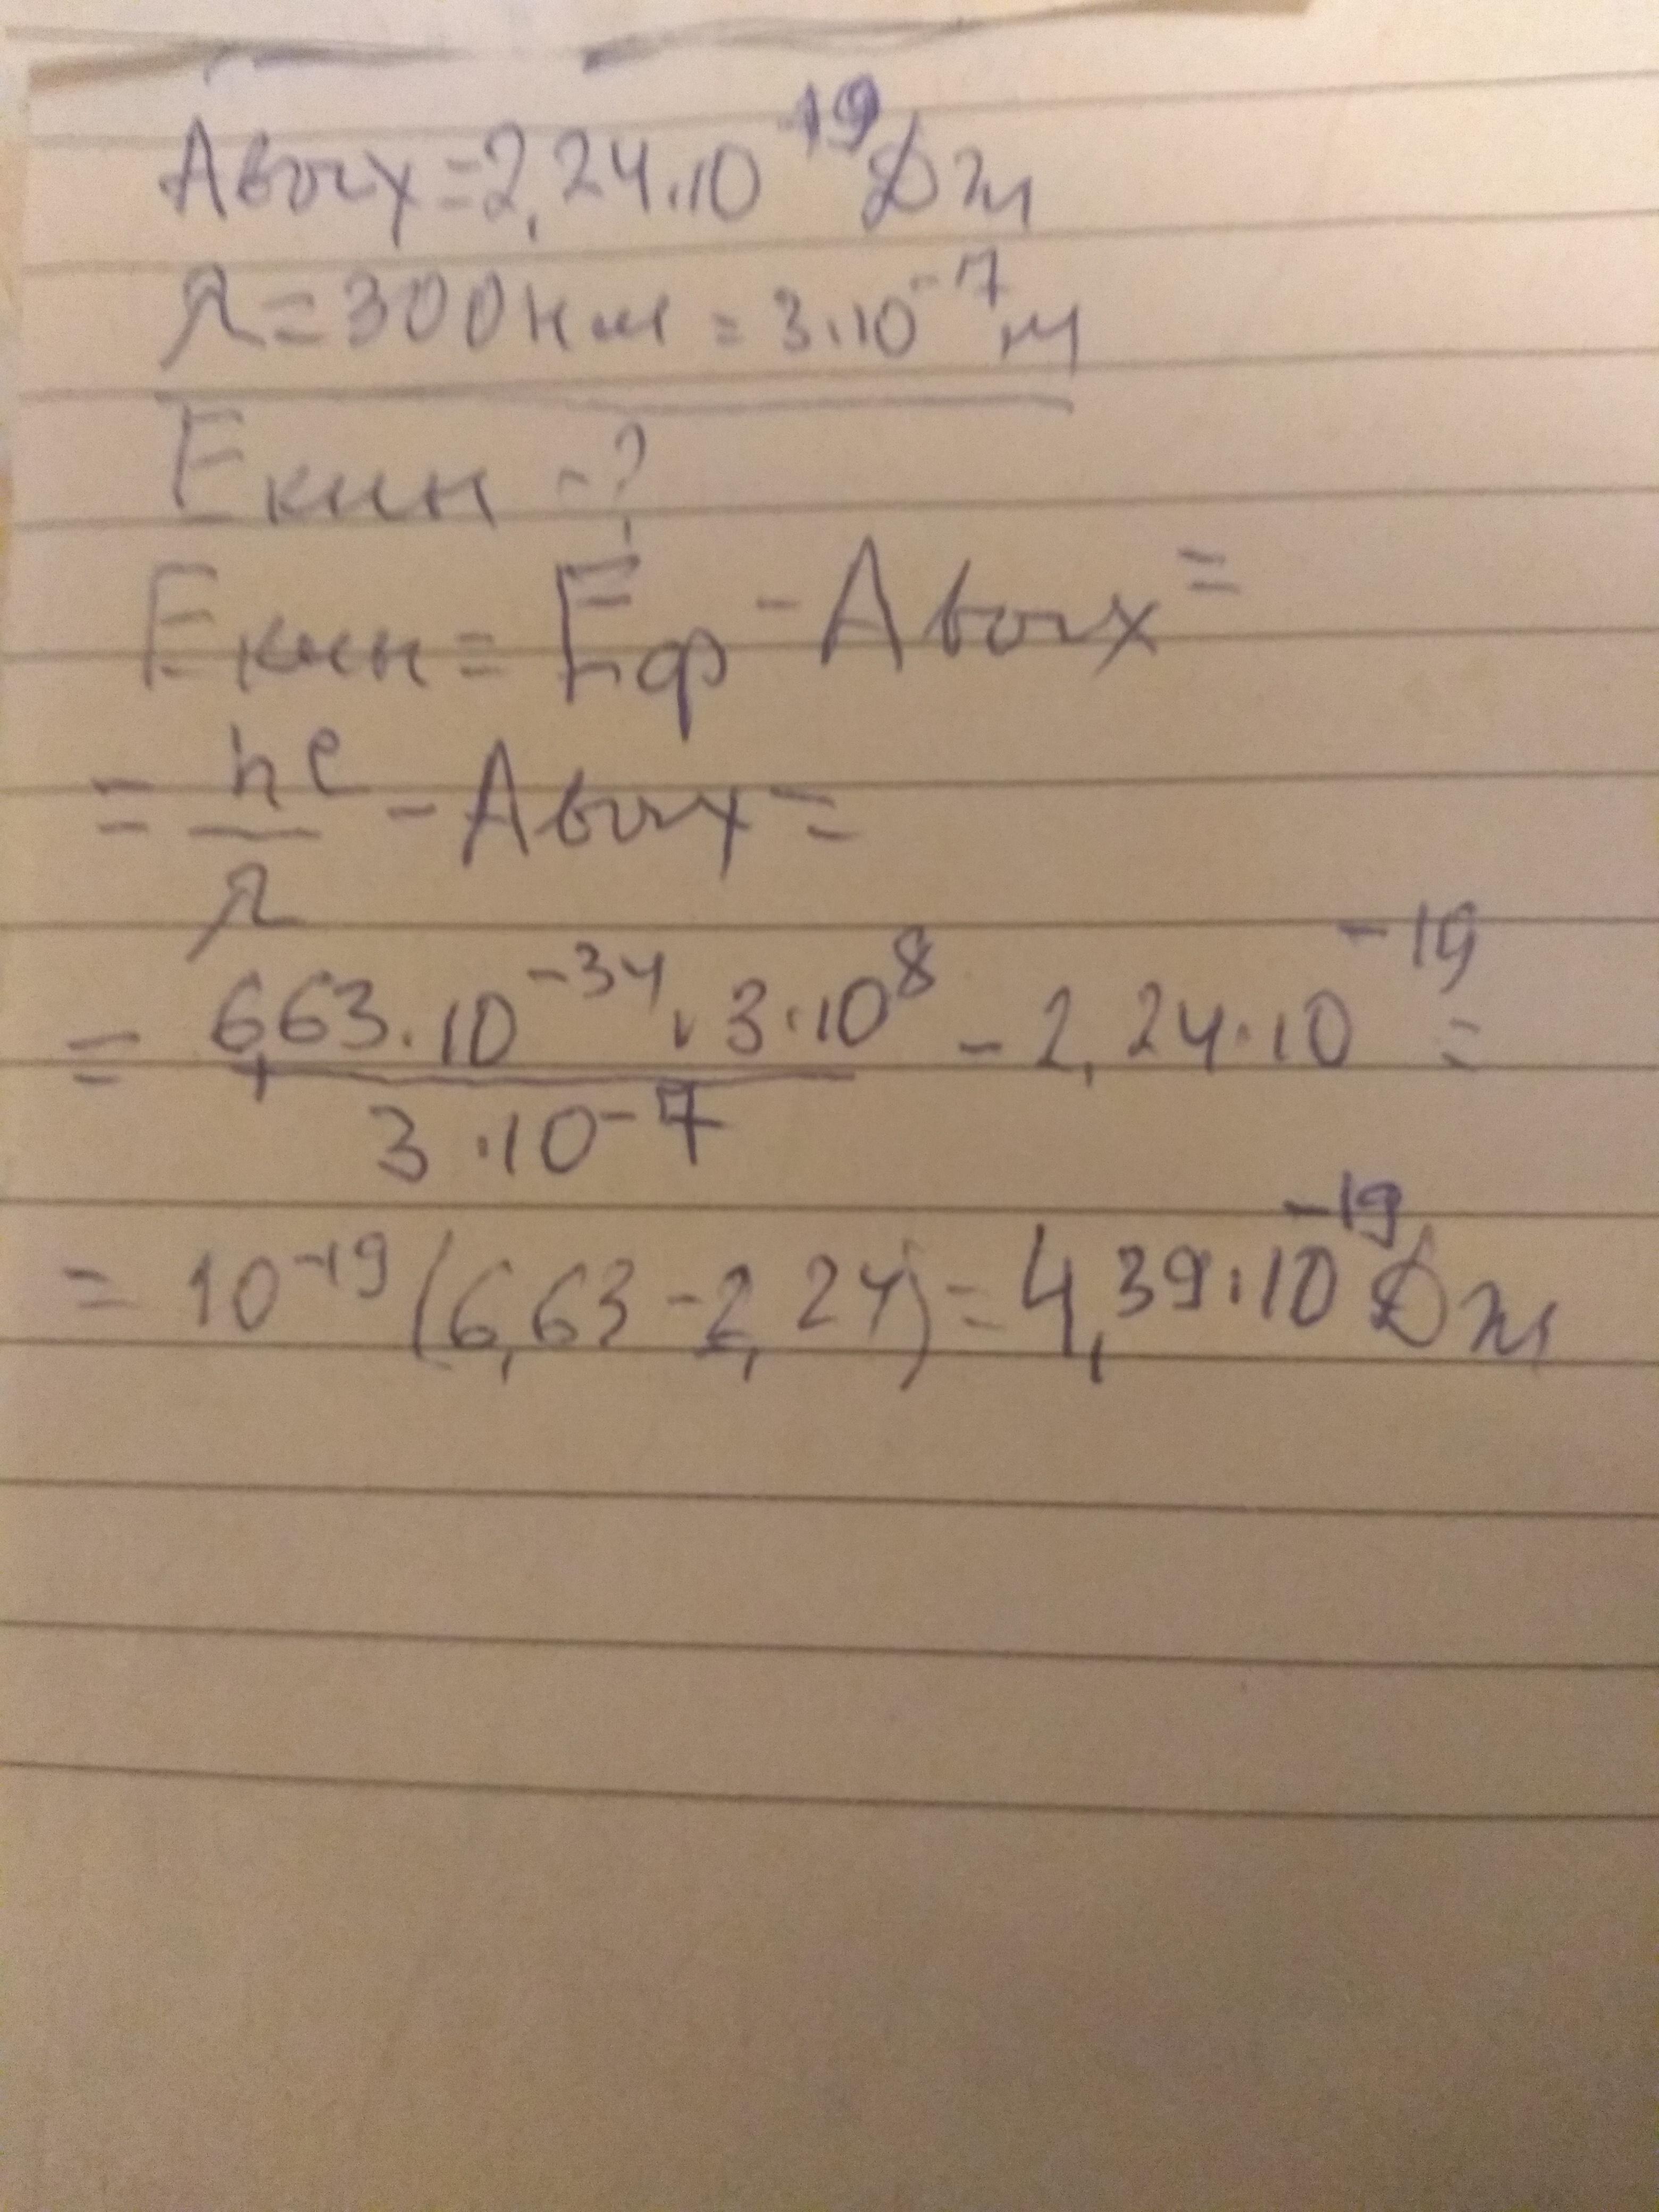 Aвых=2,24·10⁻¹⁹Дж
λ=300нм=3·10⁻⁷м
Eкин-?
Eкин=Eф-Aвых=
=hc/λ-Aвых=
=6,63·10⁻³⁴·3·10⁸/3·10⁻⁷-2,24·10⁻¹⁹=
=10⁻¹⁹(6,63-2,24)=4,39·10⁻¹⁹Дж